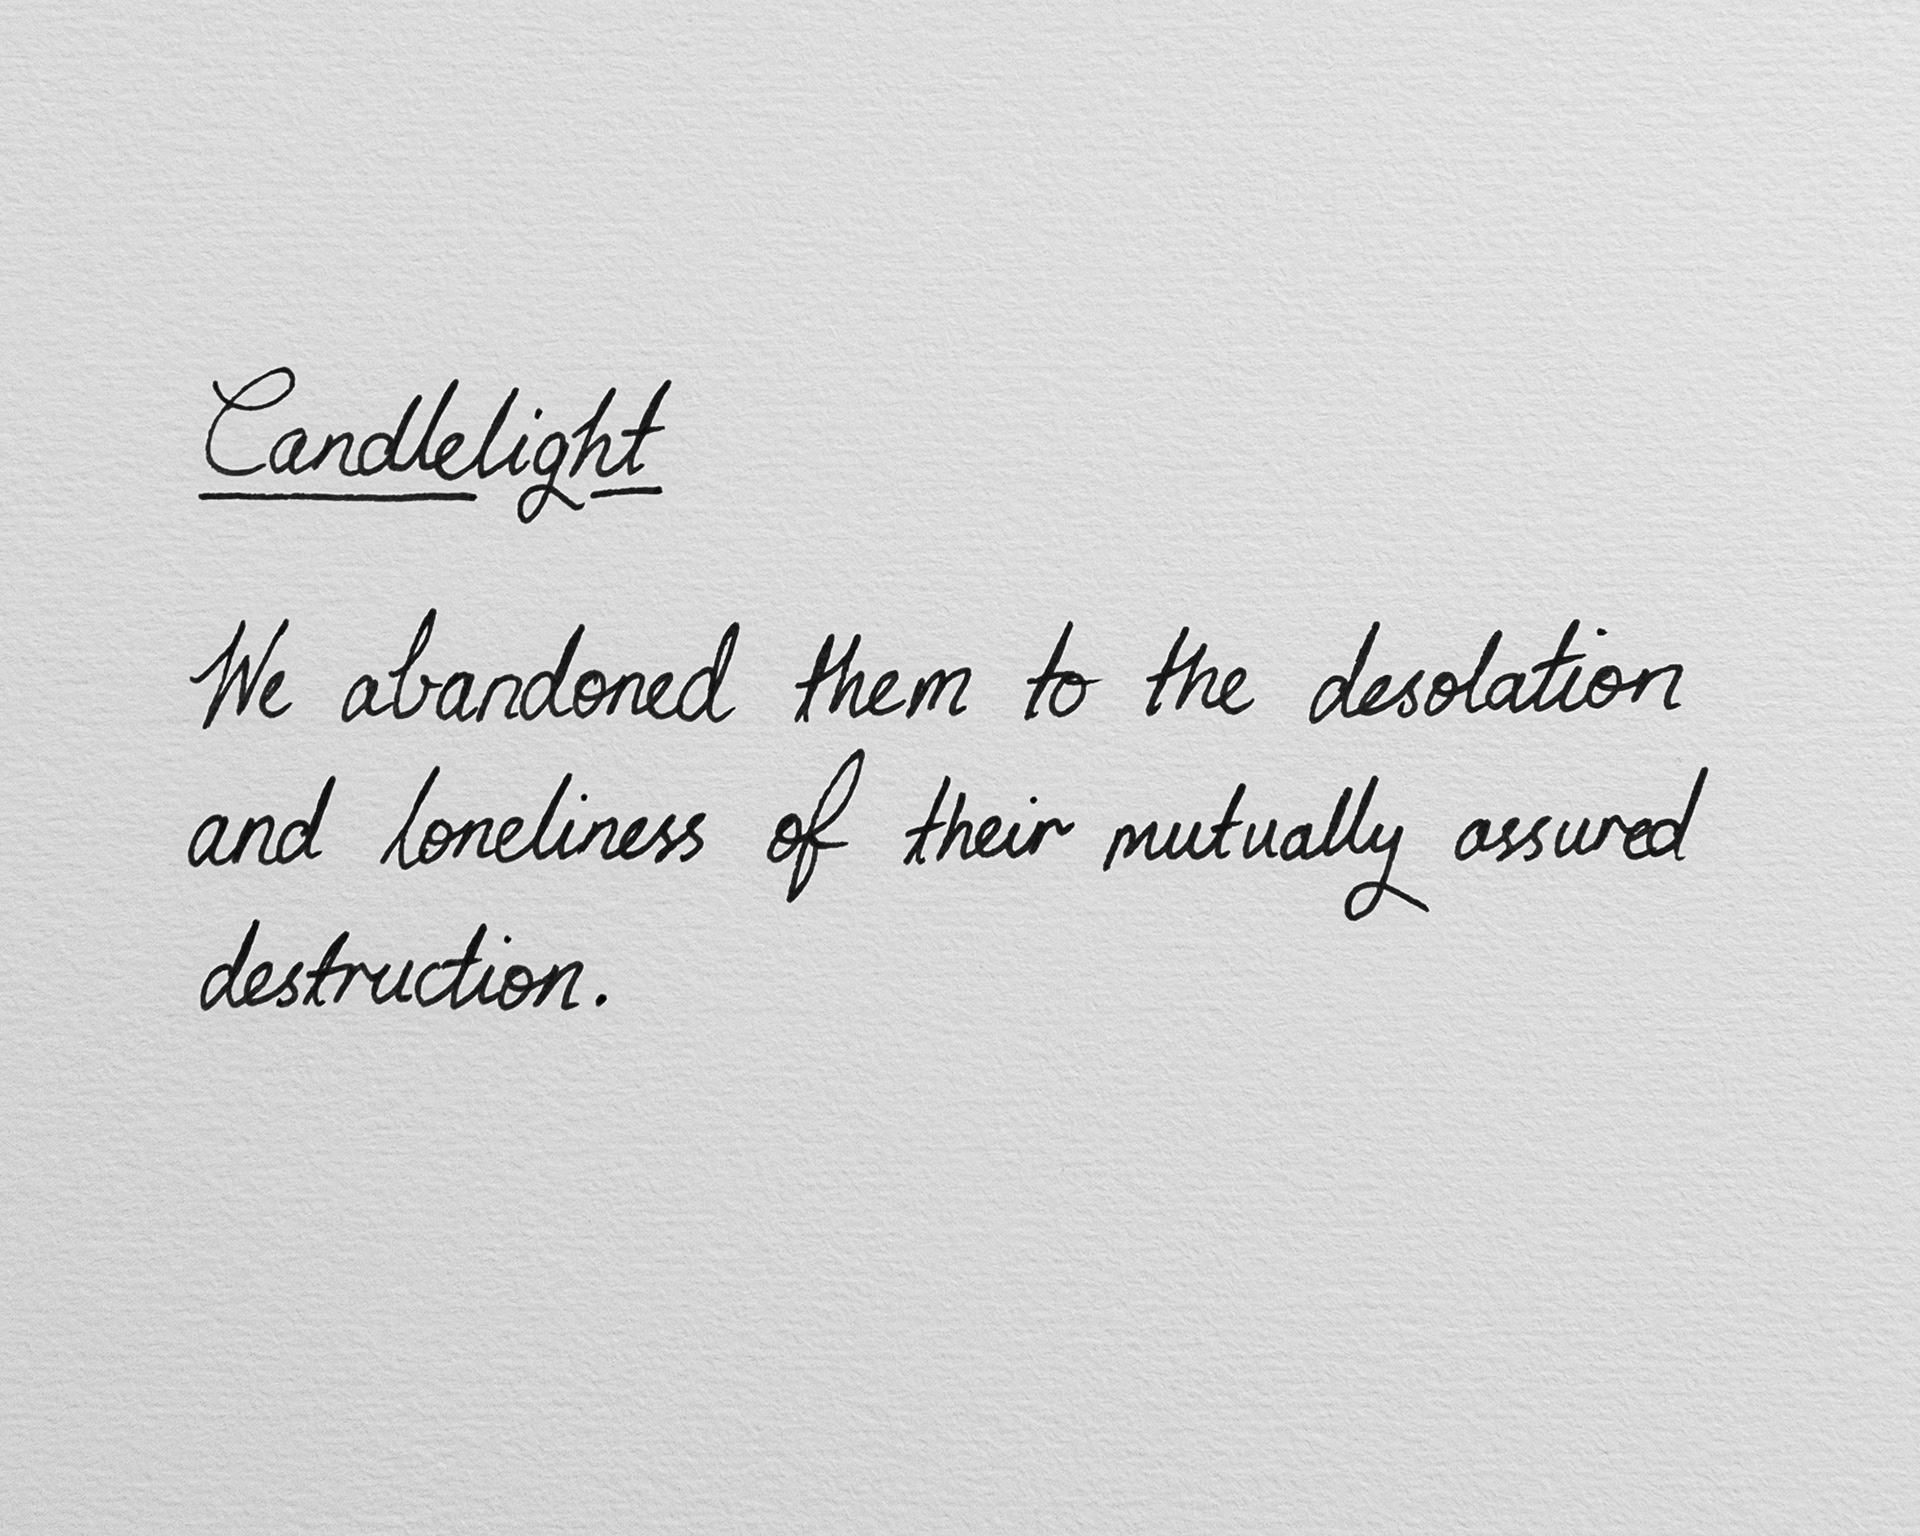 Candlelight
We abandoned them to the desolation
and loneliness of their mutually assured
destruction.